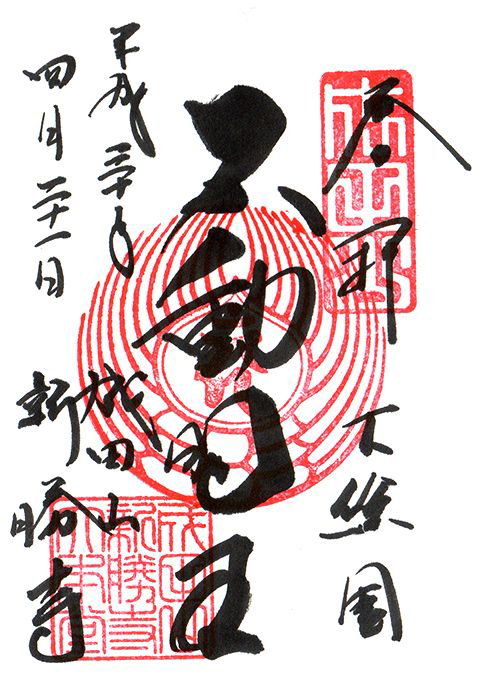 奉拝
下総国
成田山
不動明王
平成三十年
四月二十一日
成田山
新勝寺
成田山
新勝寺
大本堂